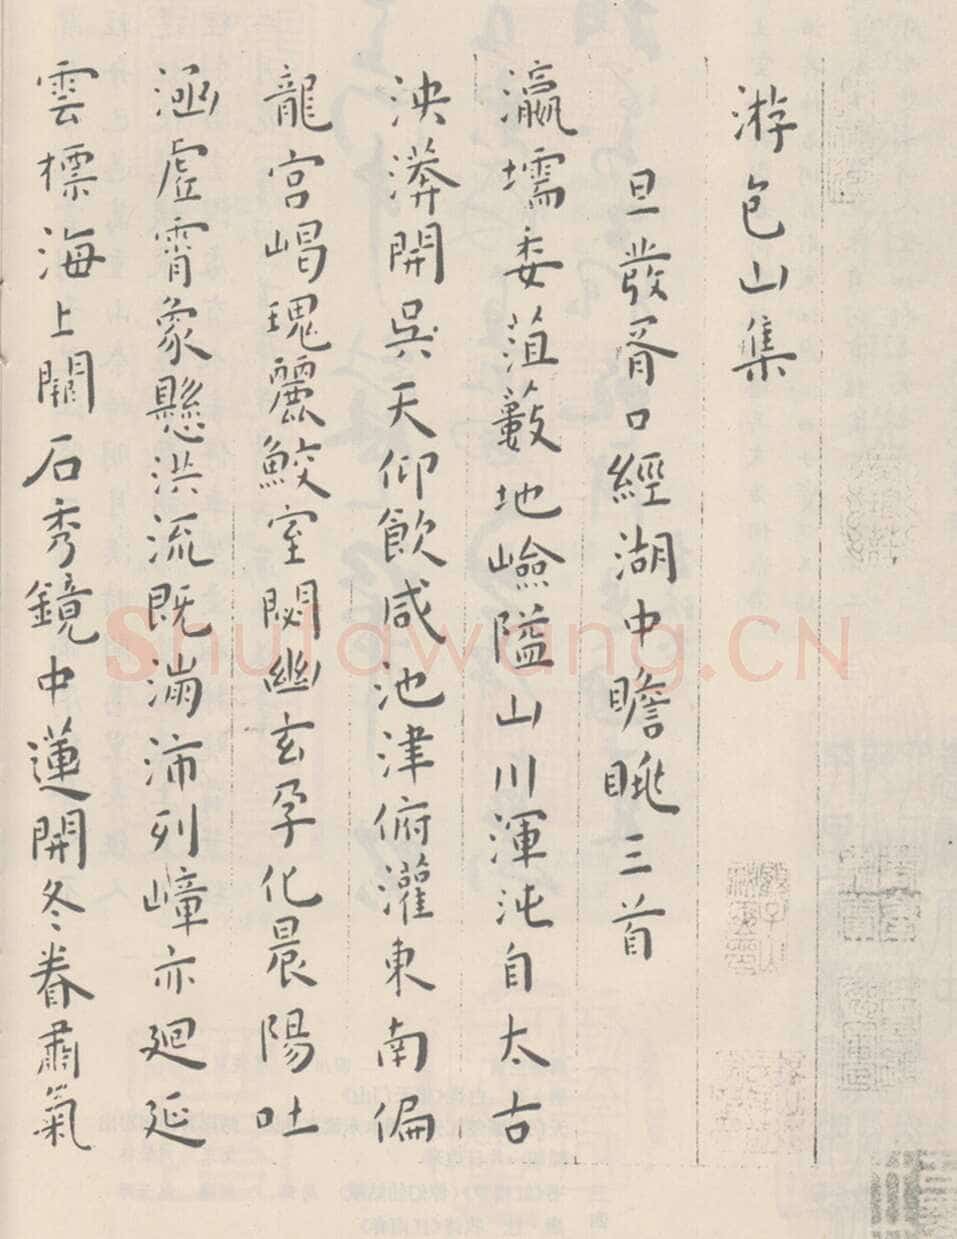 游包山集
旦發胥口經湖中瞻眺三首
瀛壖委菹藪地嶮隘山川渾沌自太古
泱漭開吳天仰飲咸池津俯灌東南偏
龍宮崿瑰麗鮫室閟幽玄孕化晨陽吐
涵虛霄象懸洪流既滿沛列嶂亦迴延
雲標海上闕石秀鏡中蓮開冬眷肅氣
Shufawang.CN